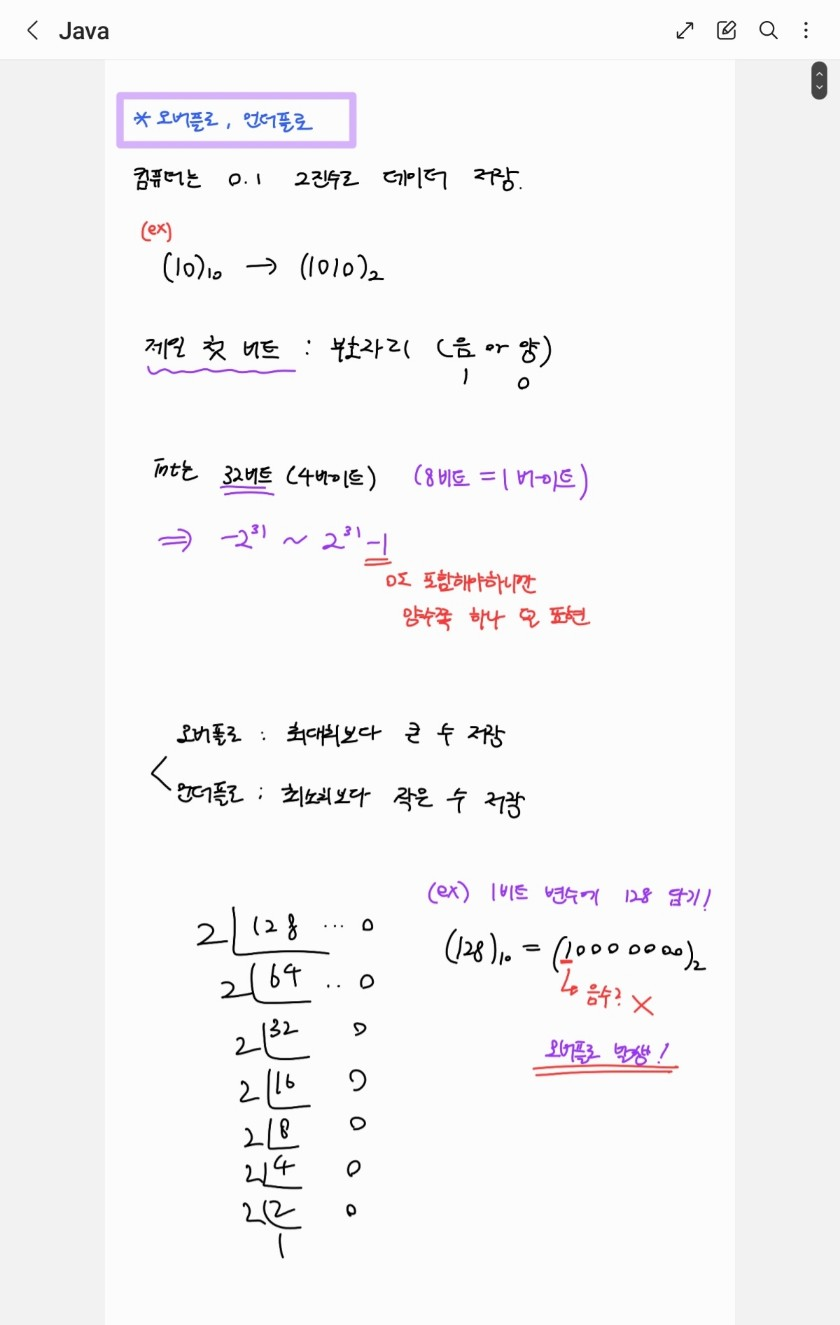 Java
* 오버플로, 언더플로
컴퓨터는 0.1 2진수로 데이터 저장.
(ex)
(10)₁₀ → (1010)₂
제일 첫 비트 : 부호자리 (음 or 양)
1 0
int는 32비트 (4바이트) (8비트 = 1바이트)
⇒ -2³¹ ~ 2³¹-1
0도 포함해야하니깐
양수쪽 하나 못 표현
오버플로 : 최대치보다 큰 수 저장
언더플로 : 최소치보다 작은 수 저장
(ex) 1비트 변수에 128 담기!
2 128 ... 0
(128)₁₀ = (10000000)₂
2 64 .. 0
↳ 음수? X
2 32 0
오버플로 발생!
2 16 0
2 8 0
2 4 0
2 2 0
1